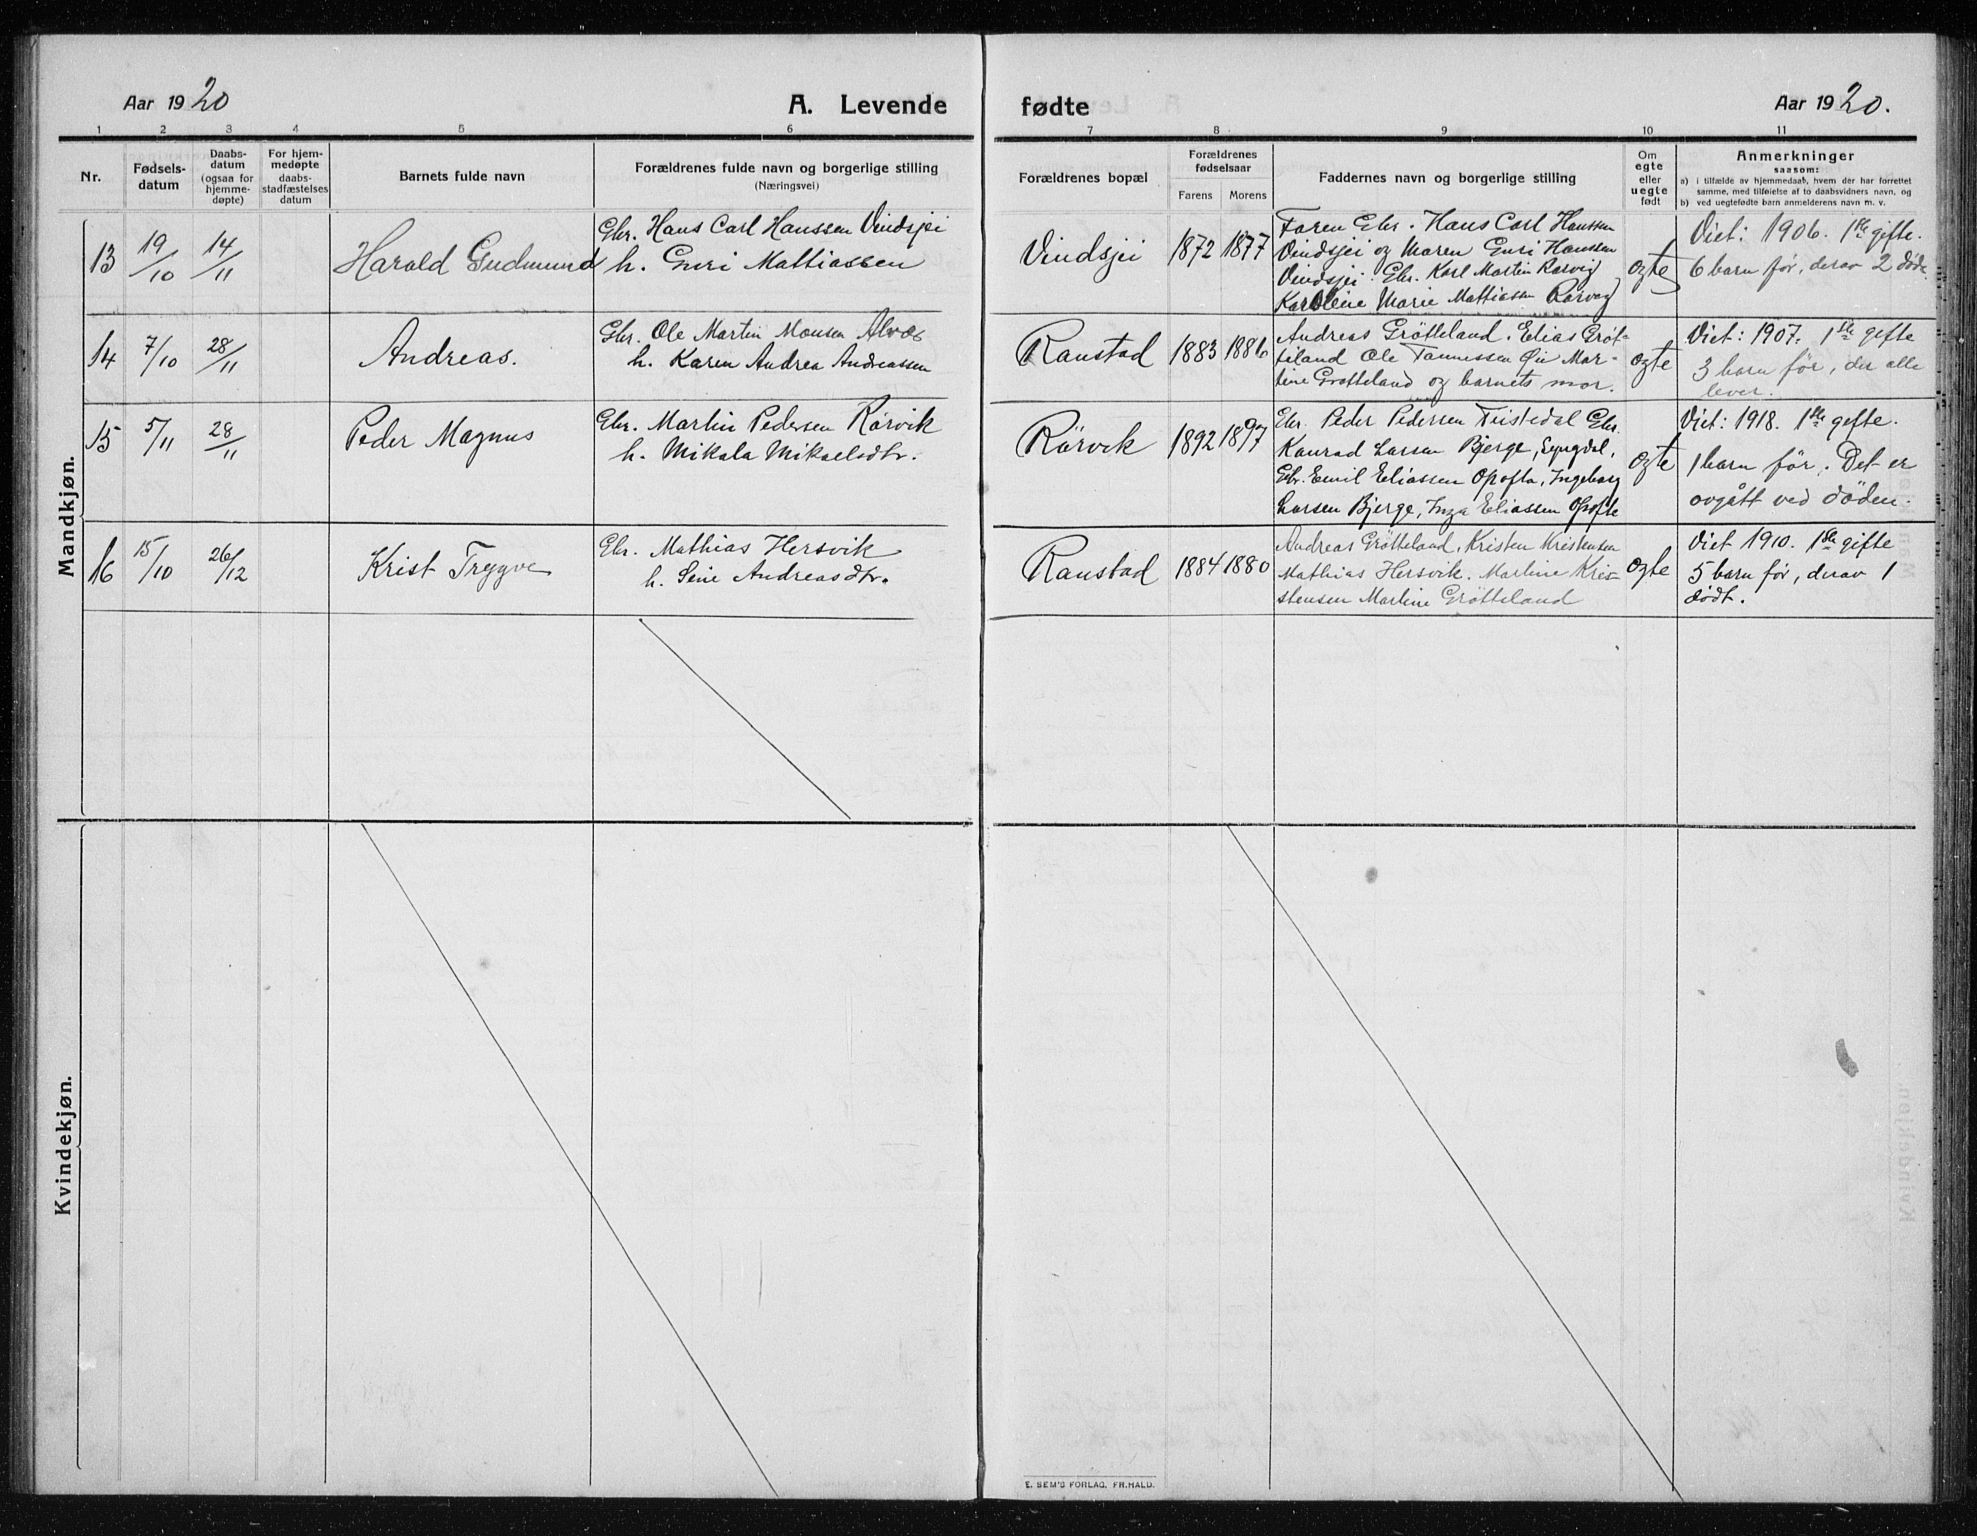 Aar 1920
A. Levende
fødte
Aar 1920.
1 2 3 4 5 6 7 8 9 10 11
Nr.
Fødsels-
datum
Daabs-
datum
(ogsaa for
hjemme-
døpte)
For hjem-
medøpte
daabs-
stadfæstelses
datum
Barnets fulde navn
Forældrenes fulde navn og borgerlige stilling
(Næringsvei)
Forældrenes bopæl
Forældrenes
fødselsaar
Farens Morens
Faddernes navn og borgerlige stilling
Om
egte
eller
uegte
født
Anmerkninger
saasom:
a) i tilfælde av hjemmedaab, hvem der har forrettet
samme, med tilføielse af to daabsvidners navn, og
b) ved uegtefødte barn anmelderens navn m. v.
Mandkjøn.
13 19/10 14/11 Harald Gudmund
Gbr. Hans Carl Hanssen Vindsjei
h. Guri Mattiassen
Vindsjei 1872 1877
Faren Gbr. Hans Carl Hanssen
Vindsjei og Maren Guri Hanssen
Vindsjei. Gbr. Karl Martin Rørvig
Karoline Marie Mattiassen Rørvig
egte
Viet: 1906. 1ste gifte.
6 barn før, derav 2 døde
14 7/10 28/11 Andreas.
Gbr. Ole Martin Monsen Alvøs
h. Karen Andrea Andreassen
Ranstad 1883 1886
Andreas Grötteland. Elias Gröt-
teland Ole Tønnessen Øie Mar-
tine Grötteland og barnets mor.
egte
Viet: 1907. 1ste gifte
3 barn før, der alle
lever.
15 5/11 28/11 Peder Magnus
Gbr. Martin Pedersen Rörvik
h. Mikala Mikaelsdtr.
Rörvik 1892 1897
Gbr. Peder Pedersen Feistedal Gbr.
Konrad Larsen Bjerge, Lyngdal,
Gbr. Emil Eliassen Opofte, Ingeborg
Larsen Bjerge, Inga Eliassen Opofte
egte
Viet: 1918. 1ste gifte.
1 barn før. Det er
avgått ved døden.
16 15/10 26/12 Krist Trygve
Gbr. Mathias Hersvik
h. Seine Andreasdtr.
Ranstad 1884 1880
Andreas Grötteland, Kristen Kristensen
Mathias Hersvik. Martine Kris-
stensen Martine Grötteland
egte
Viet 1910. 1ste gifte
5 barn før, derav 1
dødt.
Kvindekjøn.
E. SEM'S FORLAG, FR.HALD.